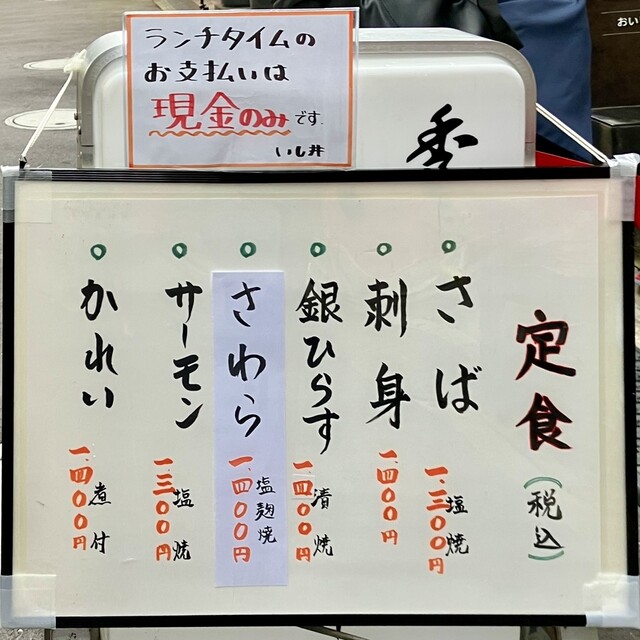 ランチタイムの
お支払いは
現金のみです.
いし井
秀
おい
定食(税込)
さば
塩焼
一.三〇〇円
刺身
一.四〇〇円
銀ひらす
漬焼
一.四〇〇円
さわら
塩麹焼
一.四〇〇円
サーモン
塩焼
一.三〇〇円
かれい
煮付
一.四〇〇円